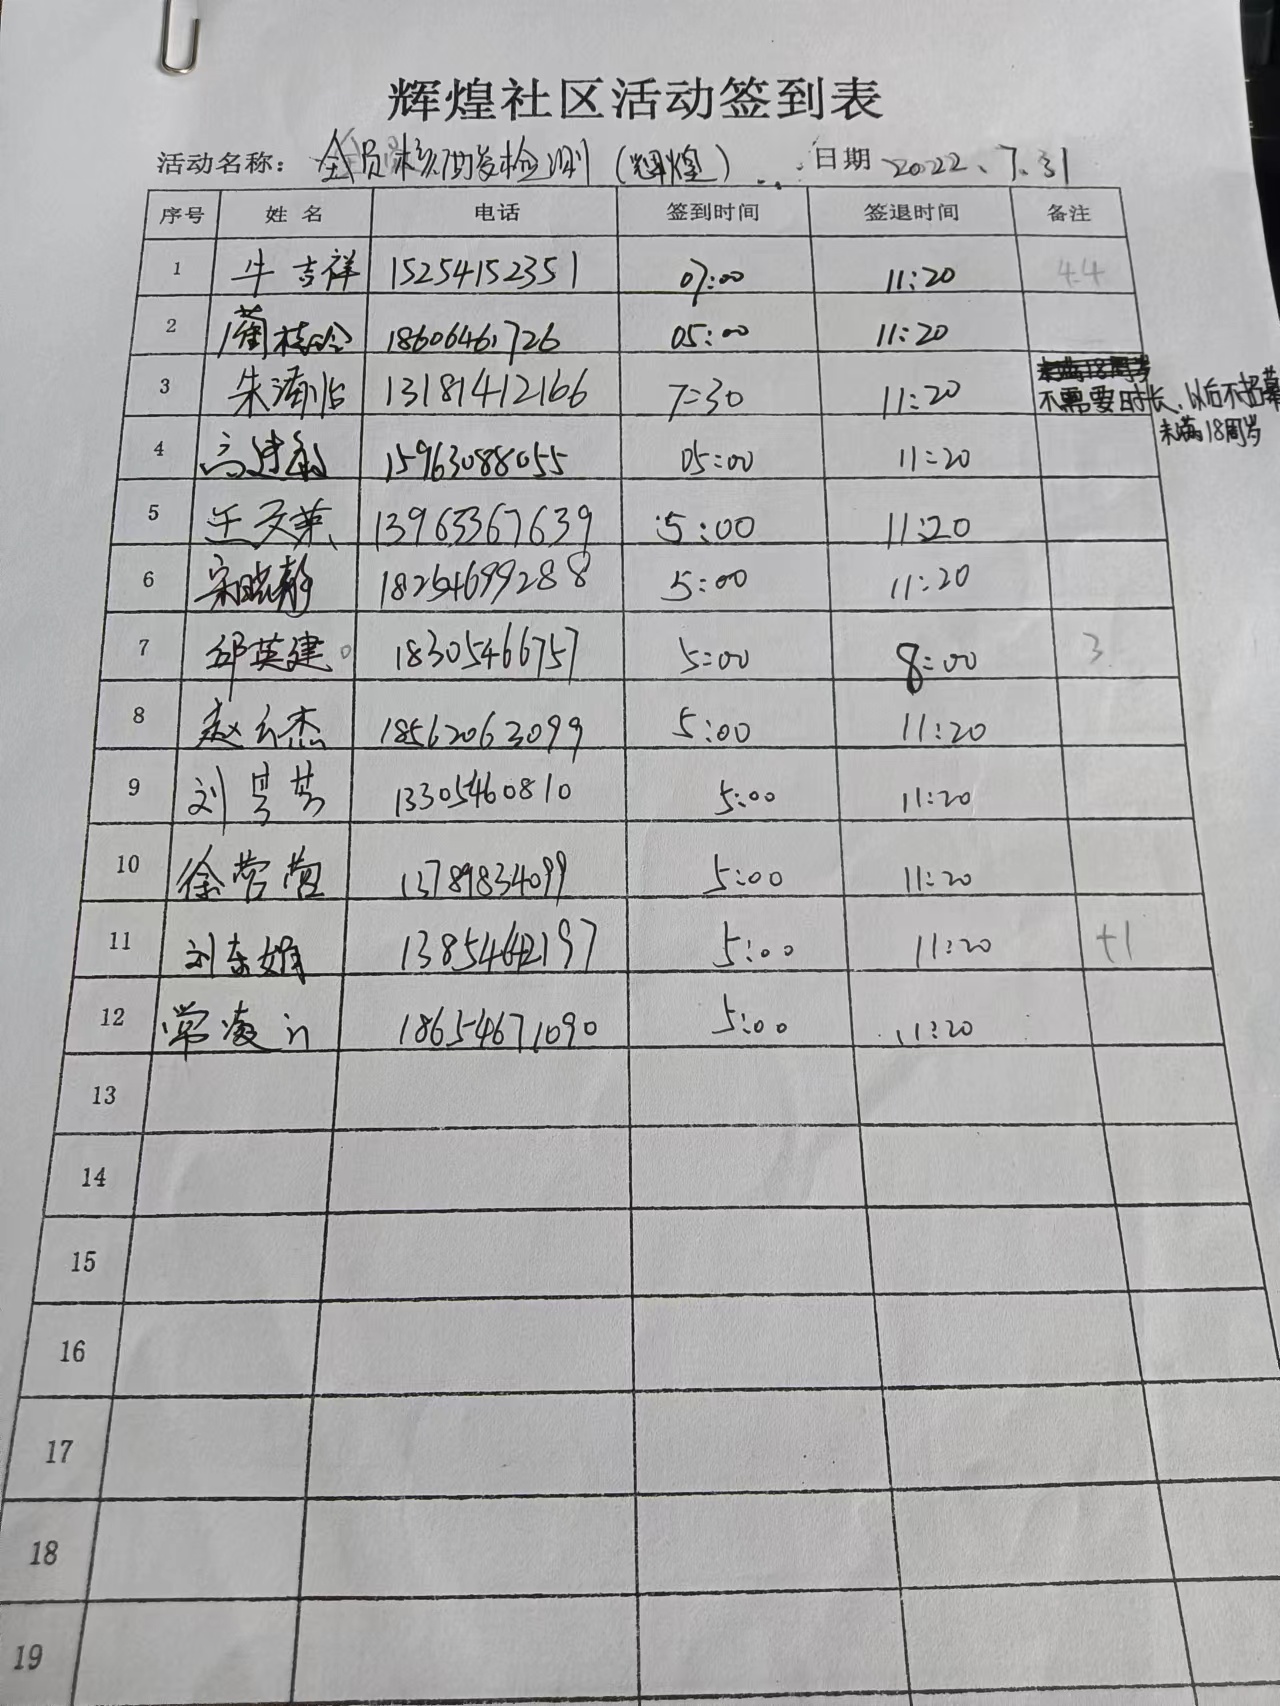 辉煌社区活动签到表
活动名称: 全员核酸检测(辉煌) 日期 2022.7.31
序号 姓名 电话 签到时间 签退时间 备注
1 牛吉祥 15254152351 07:00 11:20 44
2 18606461726 05:00 11:20
未满18周岁
3 朱 13181412166 7:30 11:20 不需要时长、以后不招募
未满18周岁
4 高建 15963088055 05:00 11:20
5 王文英 13963367639 5:00 11:20
6 宋晓静 18254699288 5:00 11:20
7 邱英建 18305466757 5:00 8:00 3
8 赵云杰 18562063099 5:00 11:20
9 刘 13305460810 5:00 11:20
10 徐营营 13789834099 5:00 11:20
11 刘东娟 13854642197 5:00 11:20 +1
12 常凌 18654671090 5:00 11:20
13
14
15
16
17
18
19